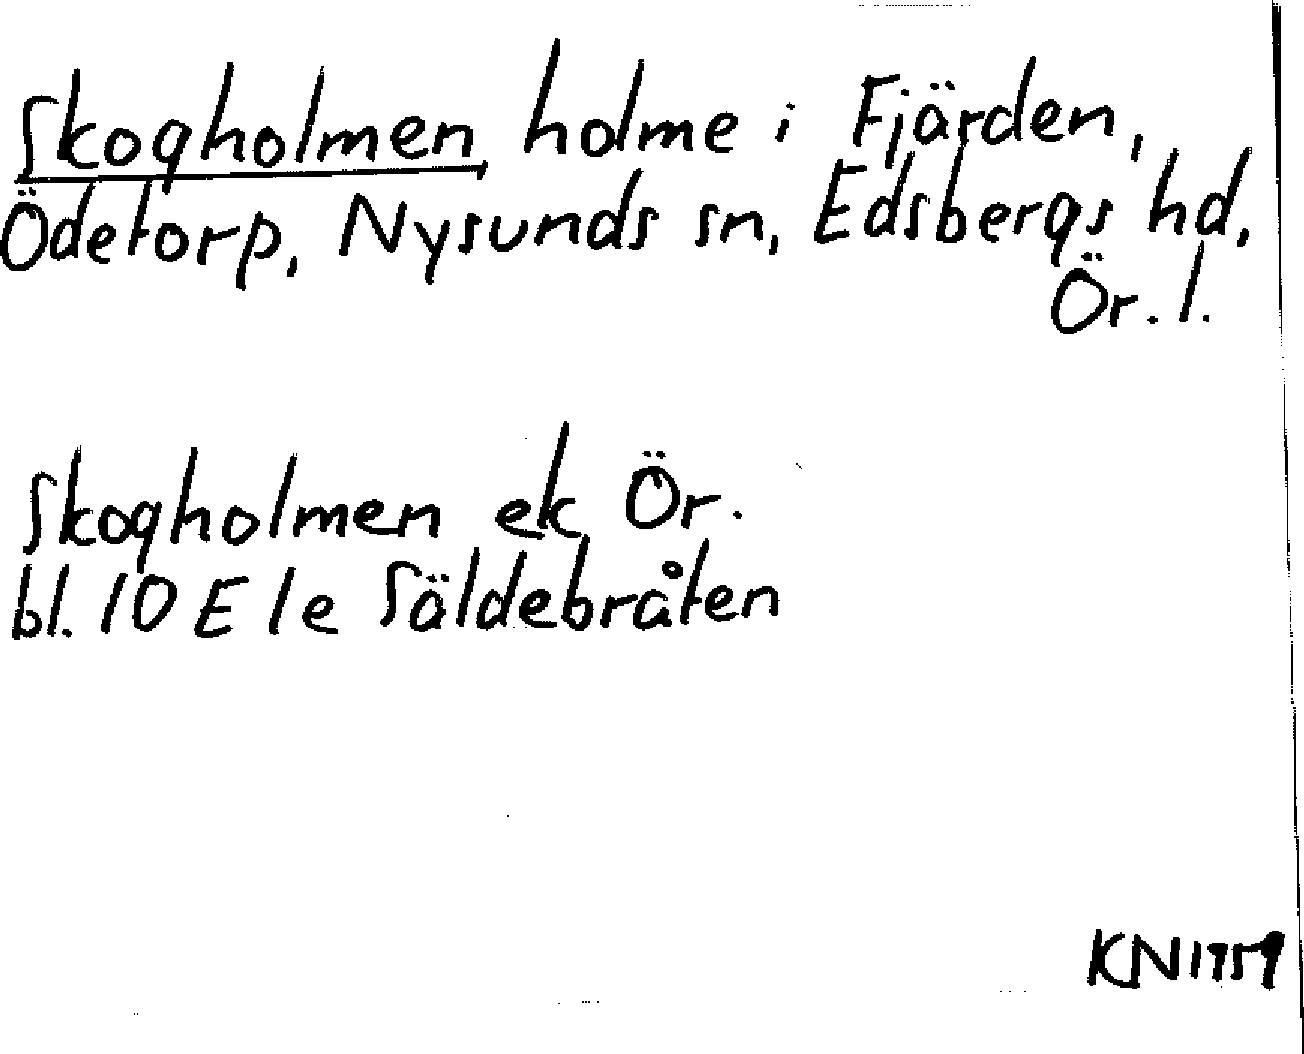 Skogholmen, holme i Fjärden,
Ödetorp, Nysunds sn, Edsbergs hd,
Ör. l.
Skogholmen ek Ör.
bl. 10 E 1e Säldebråten
KN 1959